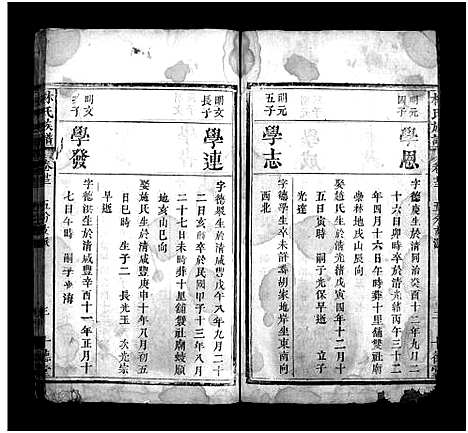 林氏族譜
明元
四子
學恩
字德慶生於清同治癸酉十二年九月二
十六日卯時卒於清光緒丙午三十二
年四月十六日午時葬十里舖雙社廟
藥林地戌山辰向
娶趙氏生於清光緒戊寅四年十二月十
五日寅時 嗣子光保早逝 立子
光達
明元
五子
學志
字德學生卒未詳葬胡家地岸坐東南向
西北
明文
長子
學連
字德嚴生於清咸豐戊午八年九月二十
二日亥時卒於民國甲子十三年八月
二十七日未時葬十里舖雙社廟蚊嚇
地亥山巳向
娶施氏生於清咸豐庚申十年八月初五
日巳時 生子二 長光玉 次光宗
早逝
明文
次子
學發
字德洪生於清咸豐辛酉十一年正月十
七日午時 嗣子少海
林氏族譜
五分